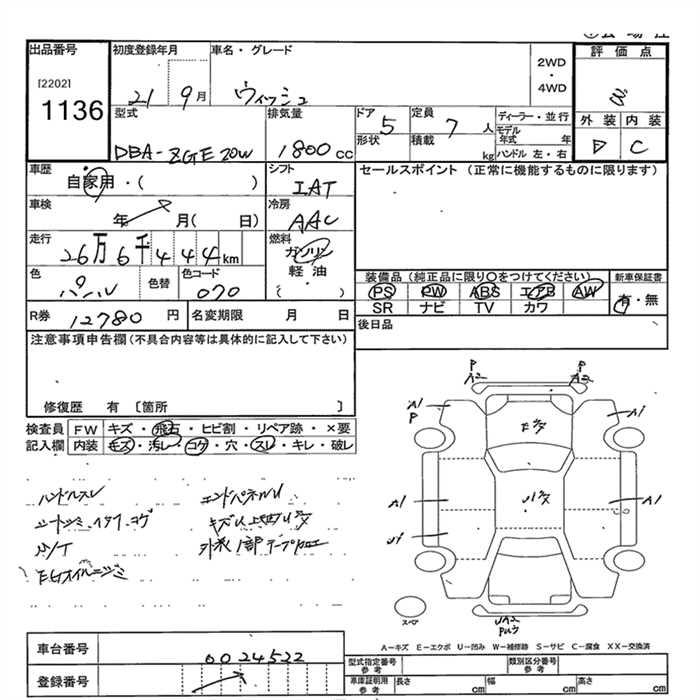 出品番号
[2202]
1136
初度登録年月
21 9月
車名・グレード
ウィッシュ
2WD
・
4WD
評価点
外装 内装
C
型式
DBA-ZGE20W
排気量
1800cc
ドア
5
形状
定員
7人
積載
kg
ディーラー・並行
モデル年式 年
ハンドル 左・右
車歴
自家用・( )
シフト
IAT
セールスポイント (正常に機能するものに限ります)
車検
年 月( 日)
冷房
AAC
走行
26万6千444km
燃料
ガソリン
軽油
( )
色
パール
色替
色コード
070
装備品(純正品に限り○をつけてください)
PS PW ABS エアB AW
SR ナビ TV カワ
新車保証書
有・無
R券 12780円
名変期限 月 日
後日品
注意事項申告欄(不具合内容等は具体的に記入して下さい)
修復歴 有 〔箇所 〕
検査員
記入欄
FW キズ・飛石・ヒビ割・リペア跡・×要
内装 キズ・汚レ・コゲ・穴・スレ・キレ・破レ
ハンドルスレ
エンドパネルU
外装1部
P
A2
P
A2
A1
P
A1
A1
A1
U1
UA2
スペア
A-キズ E-エクボ U-凹み W-補修跡 S-サビ C-腐食 XX-交換済
車台番号
0024522
登録番号
型式指定番号
参考
類別区分番号
参考
車庫証明用
参考
長さ cm
幅 cm
高さ cm